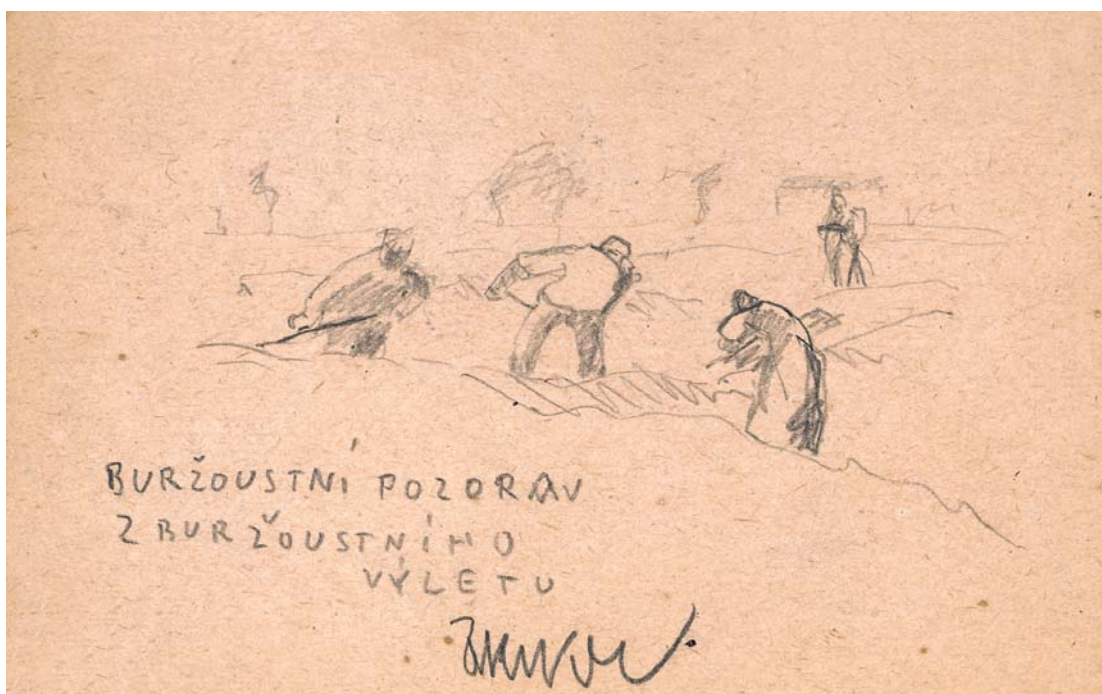 BURŽOUSTNÍ POZORAV
Z BURŽOUSTNÍHO
VÝLETU